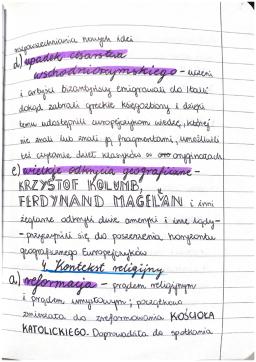 rozpowszechniania nowych idei
d.) upadek cesarstwa
wschodniorzymskiego - uczeni
i artyści bizantyjscy emigrowali do Italii
dokąd zabrali greckie księgozbiory i dzięki
temu udostępnili europejczykom wiedzę, której
nie znali lub znali ją fragmentami, umożliwili
też czytanie dzieł klasyków w oryginałach
e.) wielkie odkrycia geograficzne -
KRZYSZTOF KOLUMB,
FERDYNAND MAGELLAN i inni
żeglarze odkryli duże ameryki i inne lądy-
-przyczynili się do poszerzenia horyzontu
geograficznego Europejczyków
4. Kontekst religijny
a.) reformacja - prądem religijnym
i prądem umysłowym; początkowo
zmierzała do zreformowania KOŚCIOŁA
KATOLICKIEGO. Doprowadziła do